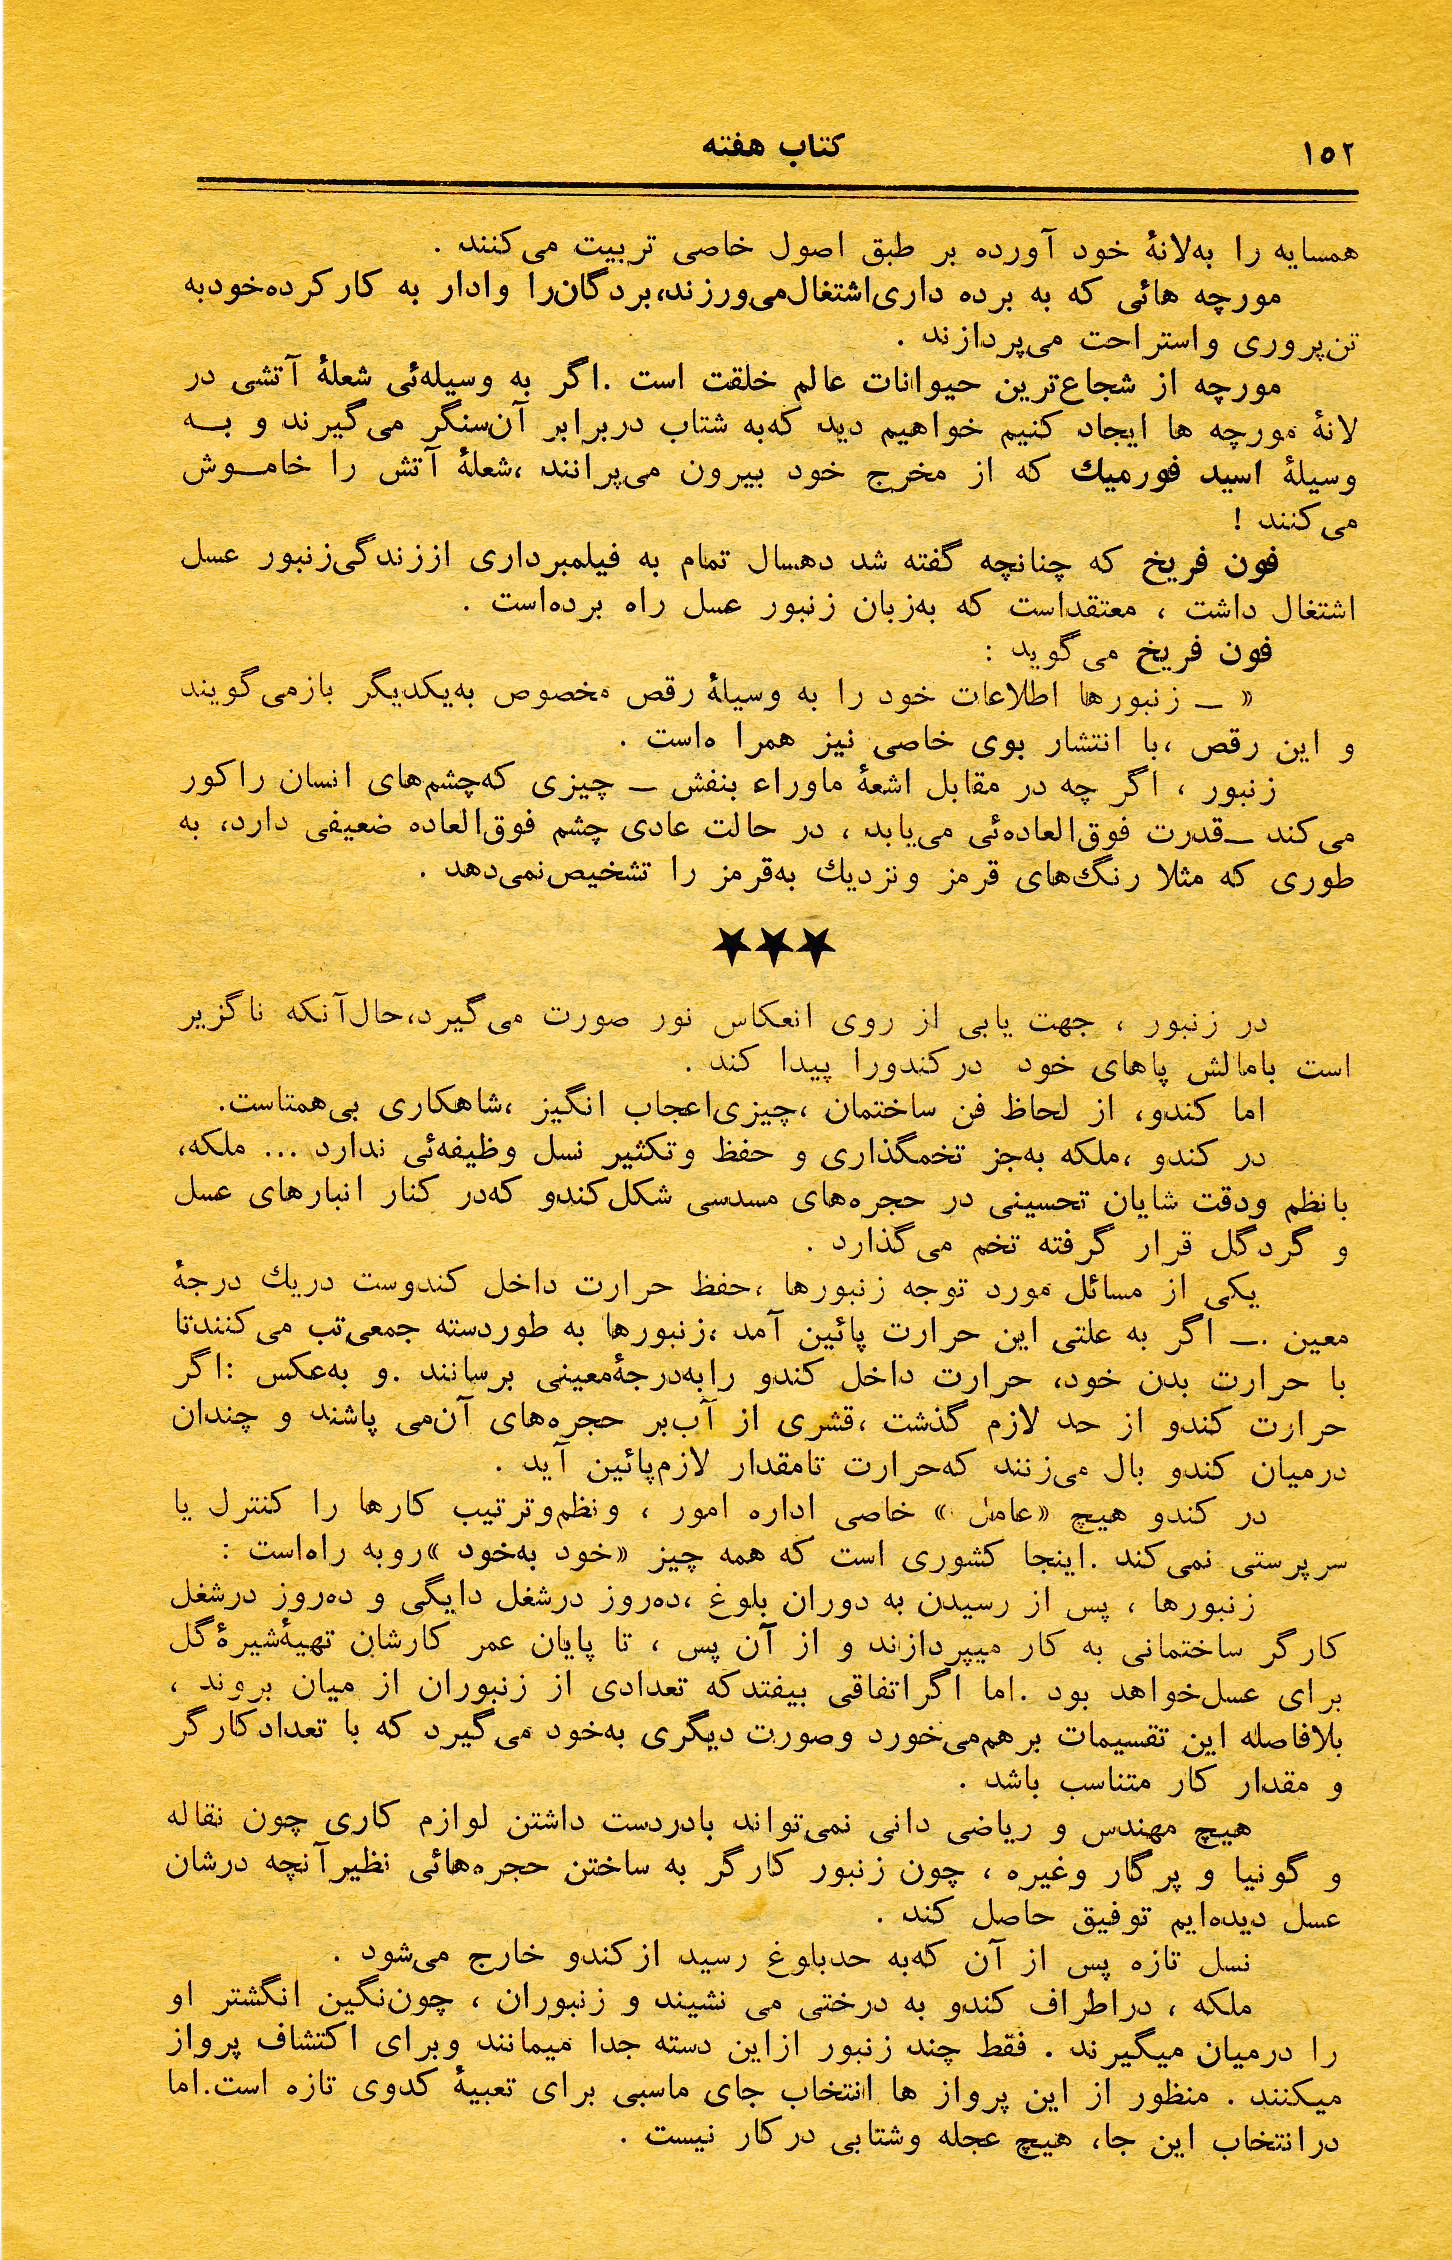 ۱۵۲
کتاب هفته
همسایه را به‌لانهٔ خود آورده بر طبق اصول خاصی تربیت می‌کنند .
مورچه هائی که به برده داری‌اشتغال‌می‌ورزند،بردگان‌را وادار به کارکرده‌خودبه
تن‌پروری واستراحت می‌پردازند .
مورچه از شجاع‌ترین حیوانات عالم خلقت است .اگر به وسیله‌ئی شعلهٔ آتشی در
لانهٔ مورچه ها ایجاد کنیم خواهیم دید که‌به شتاب دربرابر آن‌سنگر می‌گیرند و بـه
وسیلهٔ اسید فورمیك که از مخرج خود بیرون می‌پرانند ،شعلهٔ آتش را خامـوش
می‌کنند !
فون فریخ که چنانچه گفته شد دهسال تمام به فیلمبرداری اززندگی‌زنبور عسل
اشتغال داشت ، معتقداست که به‌زبان زنبور عسل راه برده‌است .
فون فریخ می‌گوید :
« ـ زنبورها اطلاعات خود را به وسیلهٔ رقص مخصوص به‌یکدیگر بازمی‌گویند
و این رقص ،با انتشار بوی خاصی نیز همرا ه‌است .
زنبور ، اگر چه در مقابل اشعهٔ ماوراء بنفش ـ چیزی که‌چشم‌های انسان راکور
می‌کند ـ‌قدرت فوق‌العاده‌ئی می‌یابد ، در حالت عادی چشم فوق‌العاده ضعیفی دارد، به
طوری که مثلا رنگ‌های قرمز ونزدیك به‌قرمز را تشخیص‌نمی‌دهد .
★★★
در زنبور ، جهت یابی از روی انعکاس نور صورت می‌گیرد،حال‌آنکه ناگزیر
است بامالش پاهای خود درکندورا پیدا کند .
اما کندو، از لحاظ فن ساختمان ،چیزی‌اعجاب انگیز ،شاهکاری بی‌همتاست.
در کندو ،ملکه به‌جز تخمگذاری و حفظ وتکثیر نسل وظیفه‌ئی ندارد ... ملکه،
بانظم ودقت شایان تحسینی در حجره‌های مسدسی شکل‌کندو که‌در کنار انبارهای عسل
و گردگل قرار گرفته تخم می‌گذارد .
یکی از مسائل مورد توجه زنبورها ،حفظ حرارت داخل کندوست دریك درجهٔ
معین .ـ اگر به علتی این حرارت پائین آمد ،زنبورها به طوردسته جمعی‌تب می‌کنندتا
با حرارت بدن خود، حرارت داخل کندو رابه‌درجهٔ‌معینی برسانند .و به‌عکس :اگر
حرارت کندو از حد لازم گذشت ،قشری از آب‌بر حجره‌های آن‌می پاشند و چندان
درمیان کندو بال می‌زنند که‌حرارت تامقدار لازم‌پائین آید .
در کندو هیچ «عامل » خاصی اداره امور ، ونظم‌وترتیب کارها را کنترل یا
سرپرستی نمی‌کند .اینجا کشوری است که همه چیز «خود به‌خود »روبه راه‌است :
زنبورها ، پس از رسیدن به دوران بلوغ ،ده‌روز درشغل دایگی و ده‌روز درشغل
کارگر ساختمانی به کار میپردازند و از آن پس ، تا پایان عمر کارشان تهیهٔ‌شیرهٔ‌گل
برای عسل‌خواهد بود .اما اگراتفاقی بیفتدکه تعدادی از زنبوران از میان بروند ،
بلافاصله این تقسیمات برهم‌می‌خورد وصورت دیگری به‌خود می‌گیرد که با تعدادکارگر
و مقدار کار متناسب باشد .
هیچ مهندس و ریاضی دانی نمی‌تواند بادردست داشتن لوازم کاری چون نقاله
و گونیا و پرگار وغیره ، چون زنبور کارگر به ساختن حجره‌هائی نظیرآنچه درشان
عسل دیده‌ایم توفیق حاصل کند .
نسل تازه پس از آن که‌به حدبلوغ رسید ازکندو خارج می‌شود .
ملکه ، دراطراف کندو به درختی می نشیند و زنبوران ، چون‌نگین انگشتر او
را درمیان میگیرند . فقط چند زنبور ازاین دسته جدا میمانند وبرای اکتشاف پرواز
میکنند . منظور از این پرواز ها انتخاب جای ماسبی برای تعبیهٔ کدوی تازه است.اما
درانتخاب این جا، هیچ عجله وشتابی درکار نیست .